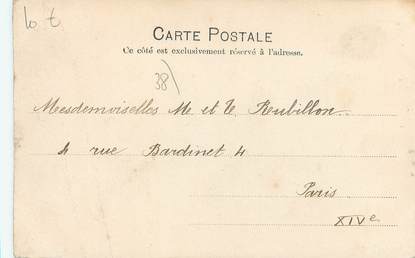 10 t
CARTE POSTALE
Ce côté est exclusivement réservé à l'adresse.
38)
Mesdemoiselles M et Y. Rubillon..
4 rue Bardinet 4
Paris
XIVe